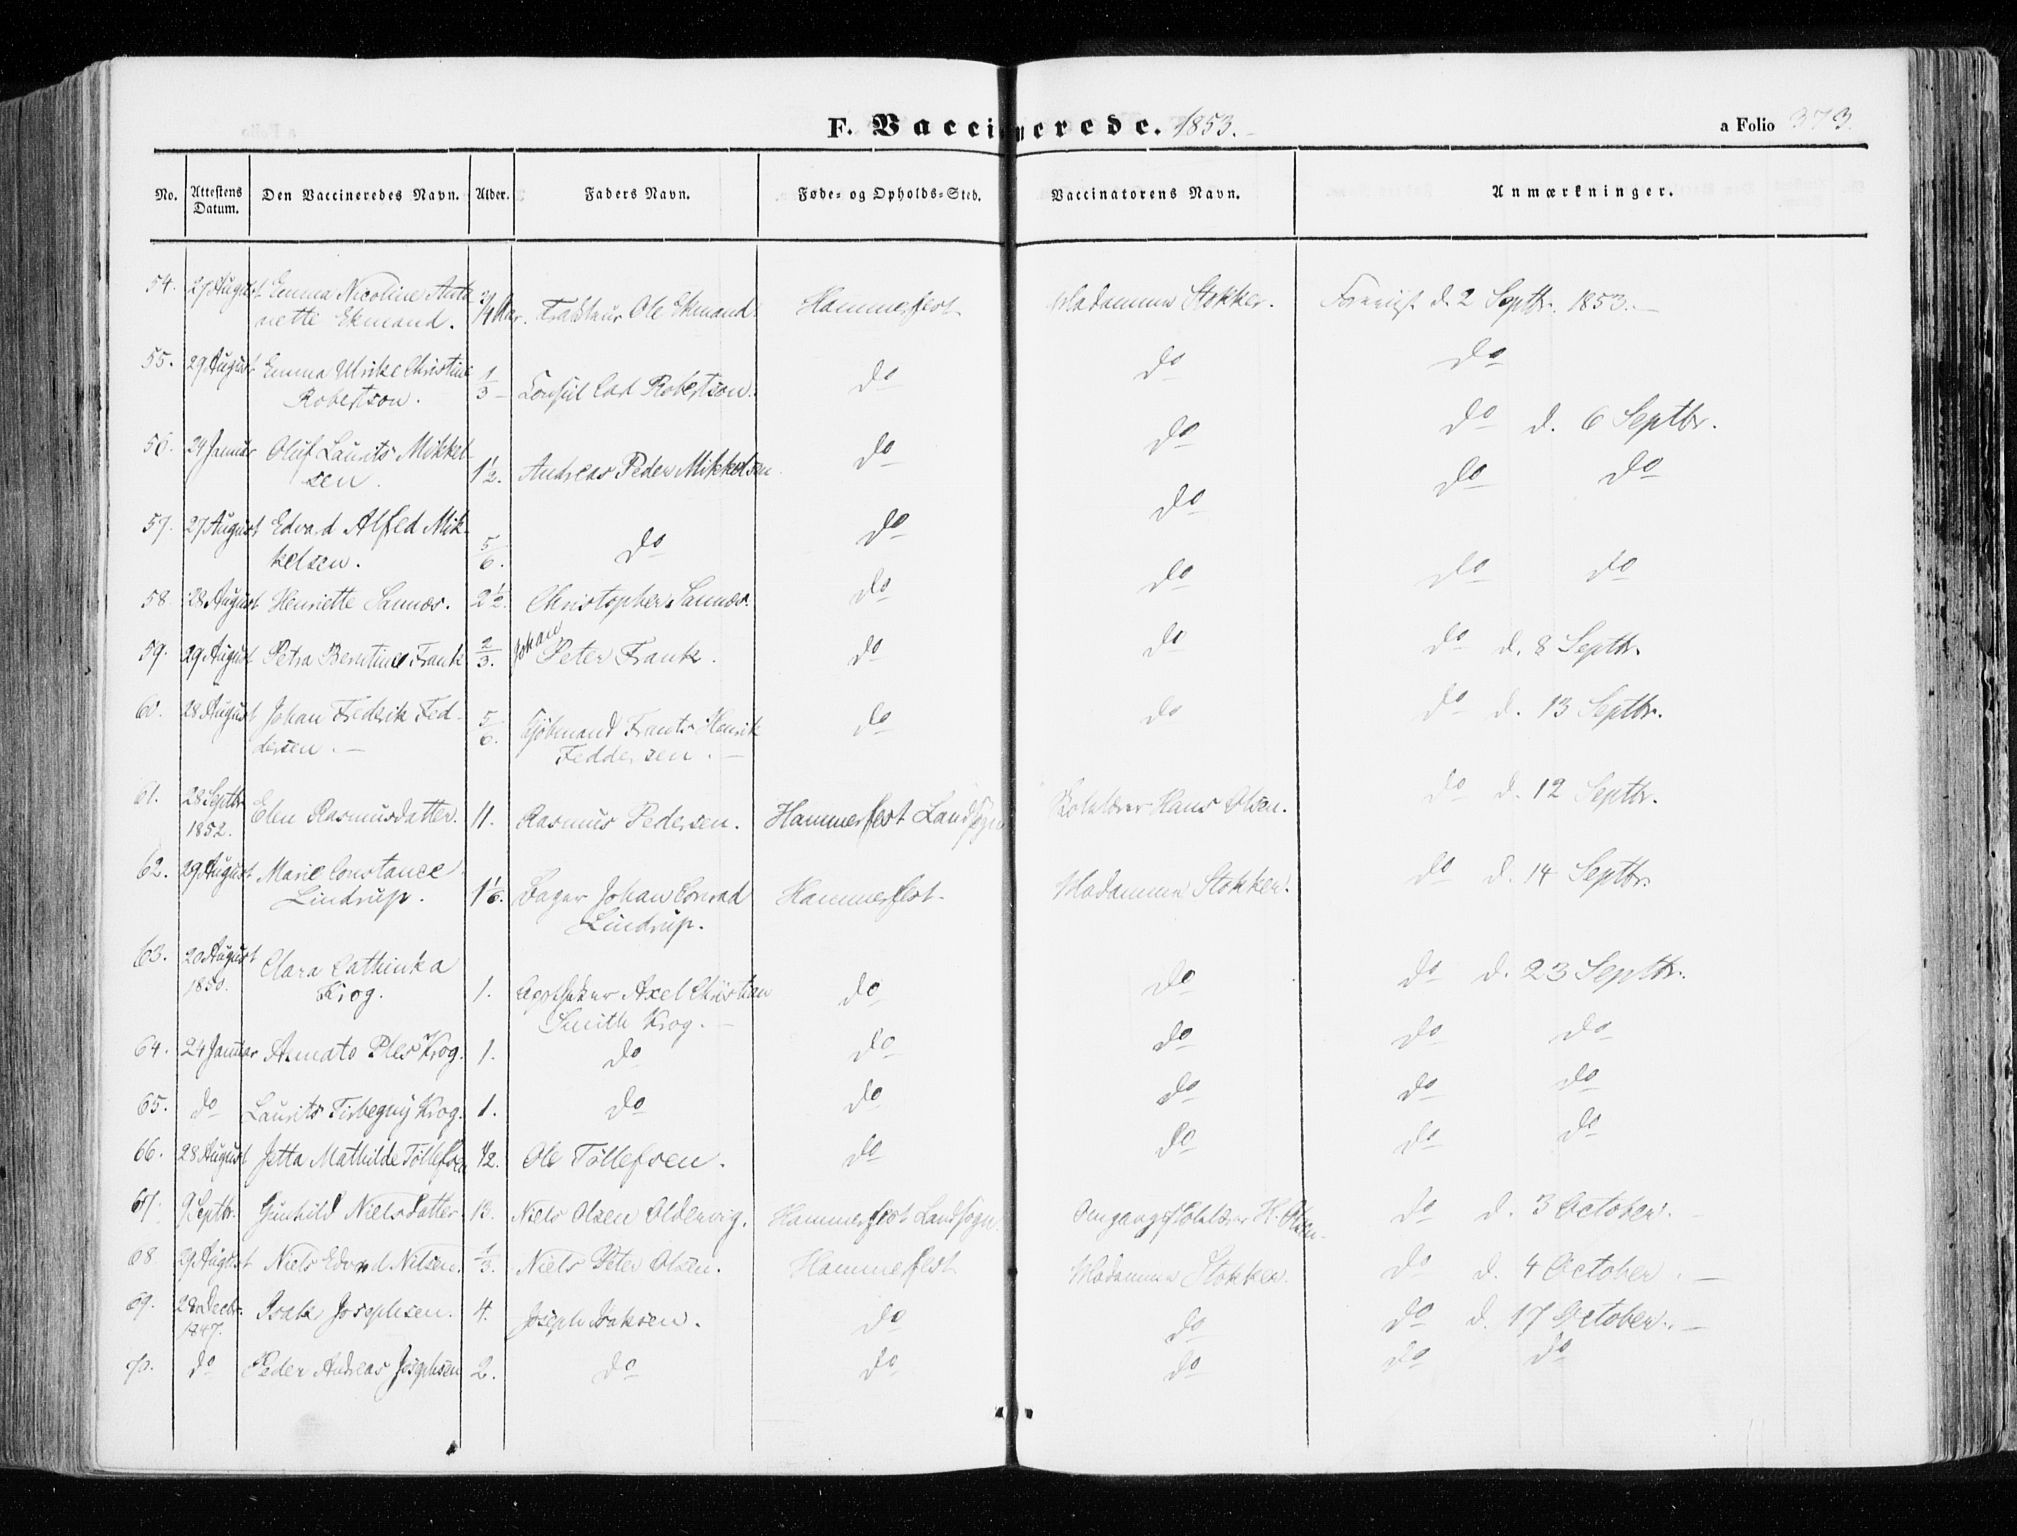 F. Vaccinerede. 1853.
a Folio 373.
No. Attestens Datum. Den Vaccineredes Navn. Alder. Faders Navn. Føde- og Opholds-Sted. Vaccinatorens Navn. Anmærkninger.
54. 27 August Emma Nicoline Anto 3/4 Aar. Ole Ekmand. Hammerfest Madamme Stokker. Foreviist d. 2 Septbr. 1853.
nette Ekmand.
55. 29 August Emma Ulrike Christine 1/3 Consul Carl Robertson. do do do
Robertson.
56. 24 Januar Oluf Laurits Mikkel 1 1/2. Andreas Peder Mikkelsen do do do d. 6 Septbr.
sen.
57. 27 August Edvard Alfred Mik- 5/6. do do do do do
kelsen.
58. 28 August Henriette Sannes. 2 1/2. Christopher Sannes. do do do do
59. 29 August Petra Berntine Frank 2/3. Johan Peter Frank. do do do d. 8 Septbr.
60. 28 August Johan Frederik Fed- 5/6. Kjøbmand Frants Henrik do do do d. 13 Septbr.
dersen. Feddersen.
61. 28 Septbr Elen Rasmusdatter. 11. Rasmus Pedersen. Hammerfest Landsogn Skolelærer Hans Olsen. do d. 12 Septbr.
1852.
62. 29 August Marie Constance 1 1/6. Bager Johan Conrad Hammerfest. Madamme Stokker. do d. 14 Septbr.
Lindrup. Lindrup.
63. 20 August Clara Cathinka 1. Apotheker Axel Christian do do do d. 23 Septbr.
1850. Krog. Smith Krog.
64. 24 Januar Krog. 1. do do do do do
65. do Laurits Krog. 1. do do do do do
66. 28 August Jetta Mathilde Tollefsen 1/2. Ole Tollefsen. do do do do
67. 9 Septbr. Gunhild Nielsdatter 13. Niels Olsen Oldervig. Hammerfest Landsogn. Omgangsskolelærer H. Olsen. do d. 3 October.
68. 29 August Niels Edvard Nilsen. 1/3. Niels Peter Olsen. Hammerfest Madamme Stokker. do d. 4 October.
69. 28 Decbr. Isak Josephsen. 4. Joseph Isaksen. do do do d. 17 October.
1847.
70. do Peder Andreas Josephsen 2. do do do do do